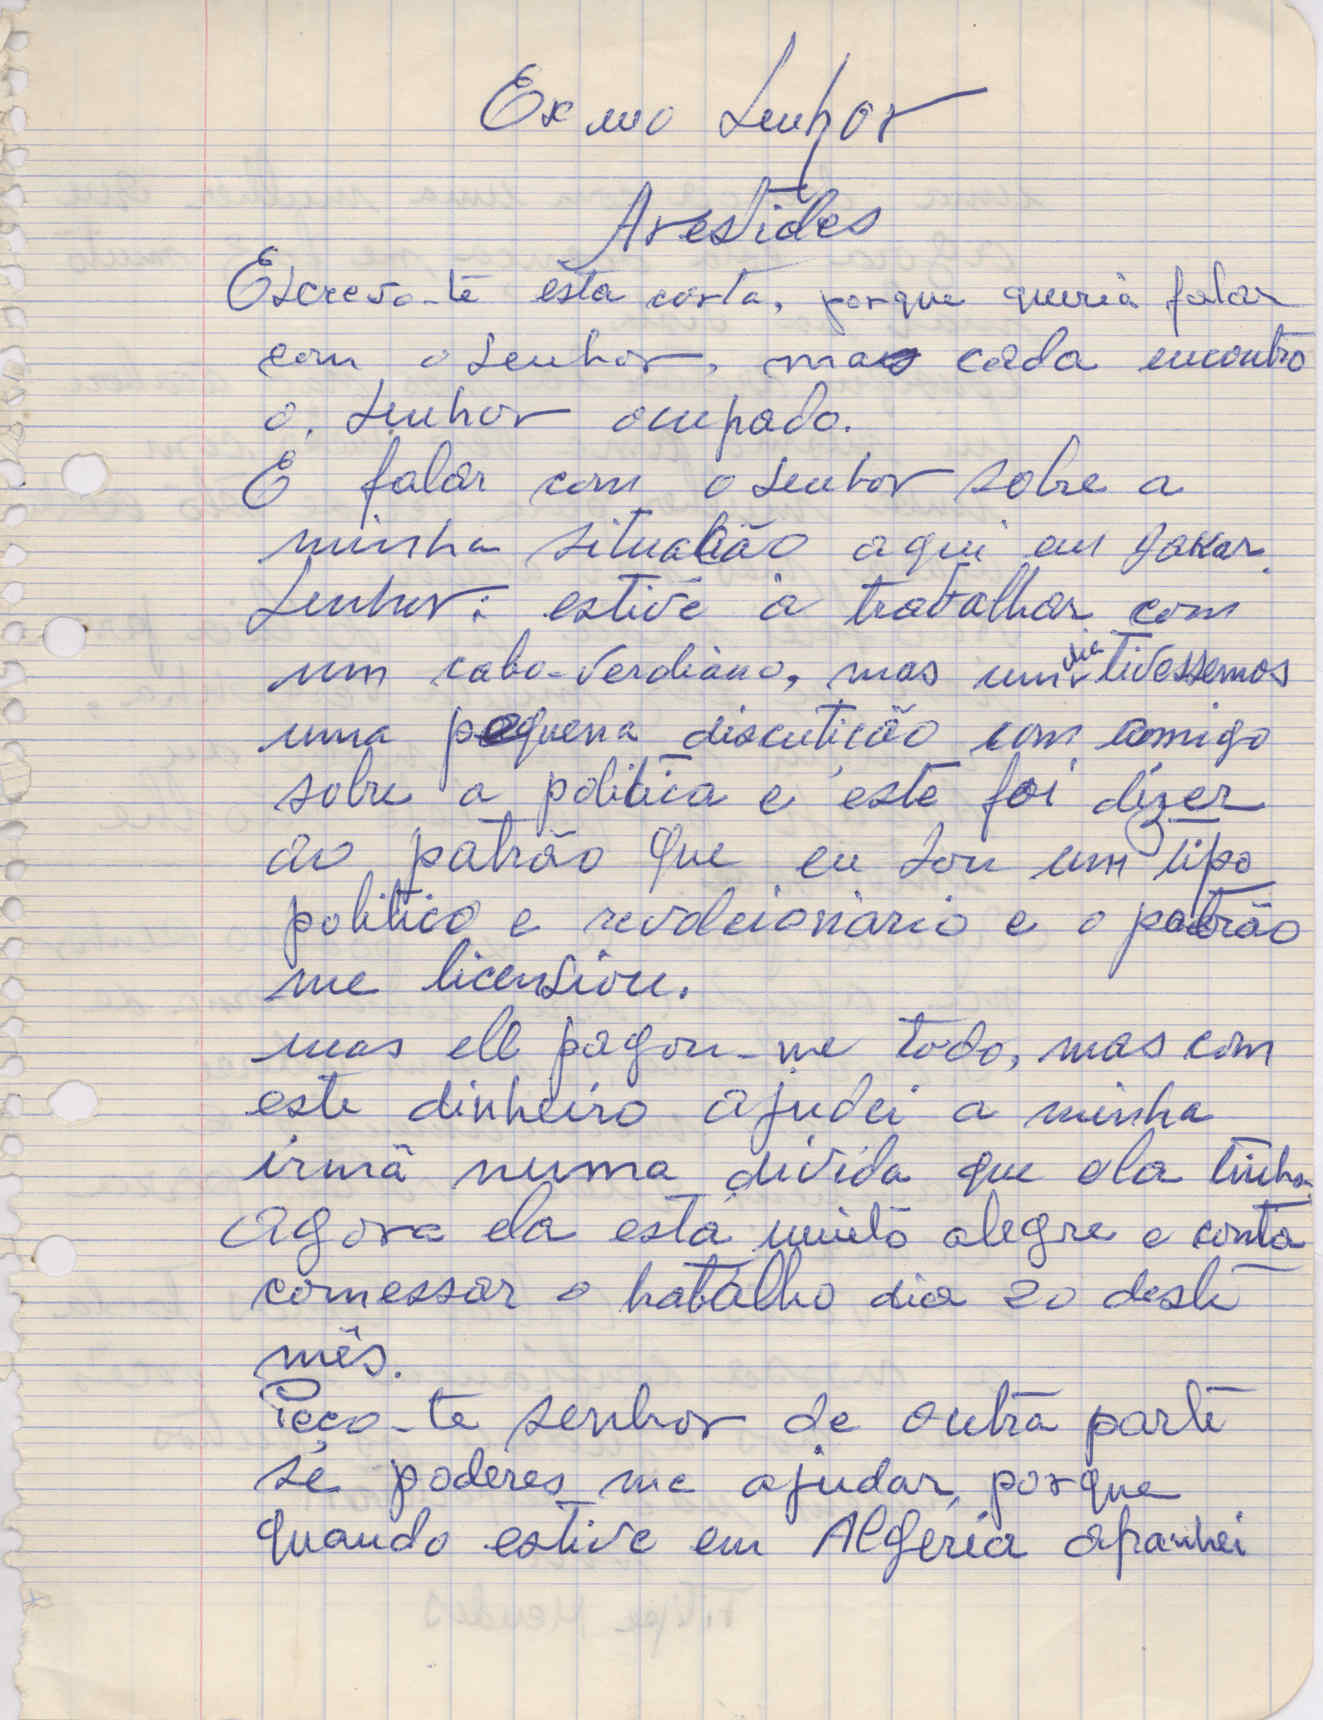 Exmo Senhor
Arestides
Escrevo-te esta carta, porque queria falar
com o senhor, mas cada encontro
o senhor ocupado.
E falar com o senhor sobre a
minha situacão aqui em Dakar.
Senhor: estive a trabalhar com
um cabo-verdiano, mas um dia tivessemos
uma pequena discutição com comigo
sobre a politica e este foi dizer
ao patrão que eu sou um tipo
politico e revolcionario e o patrão
me licensiou.
mas ele pagou-me todo, mas com
este dinheiro ajudei a minha
irmã numa divida que ela tinha.
Agora ela esta muito alegre e conta
comessar o trabalho dia 20 deste
mês.
Peço-te senhor de outra parte
se poderes me ajudar, porque
quando estive em Algeria apanhei